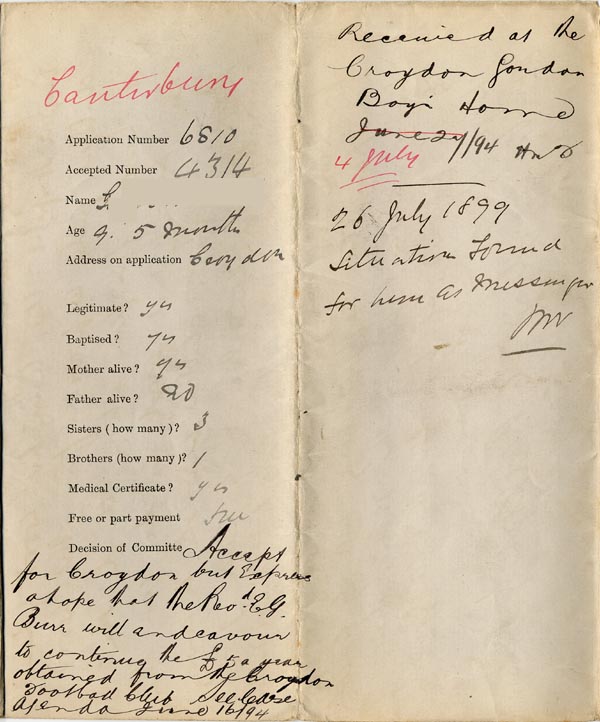 Canterbury
Application Number 6810
Accepted Number 4314
Name G
Age 9. 5 months
Address on application Croydon
Legitimate? yes
Baptised? yes
Mother alive? yes
Father alive? no
Sisters (how many)? 3
Brothers (how many)? 1
Medical Certificate? yes
Free or part payment free
Decision of Committe Accept
for Croydon but Express
a hope that the Revd. E.G.
Burr will endeavour
to continue the £5 a year
obtained from the Croydon
Football Club See Case
Agenda June 16/94
Received at the
Croydon Gordon
Boys Home
June 29/94
4 July
26 July 1899
Situation Found
for him as Messenger